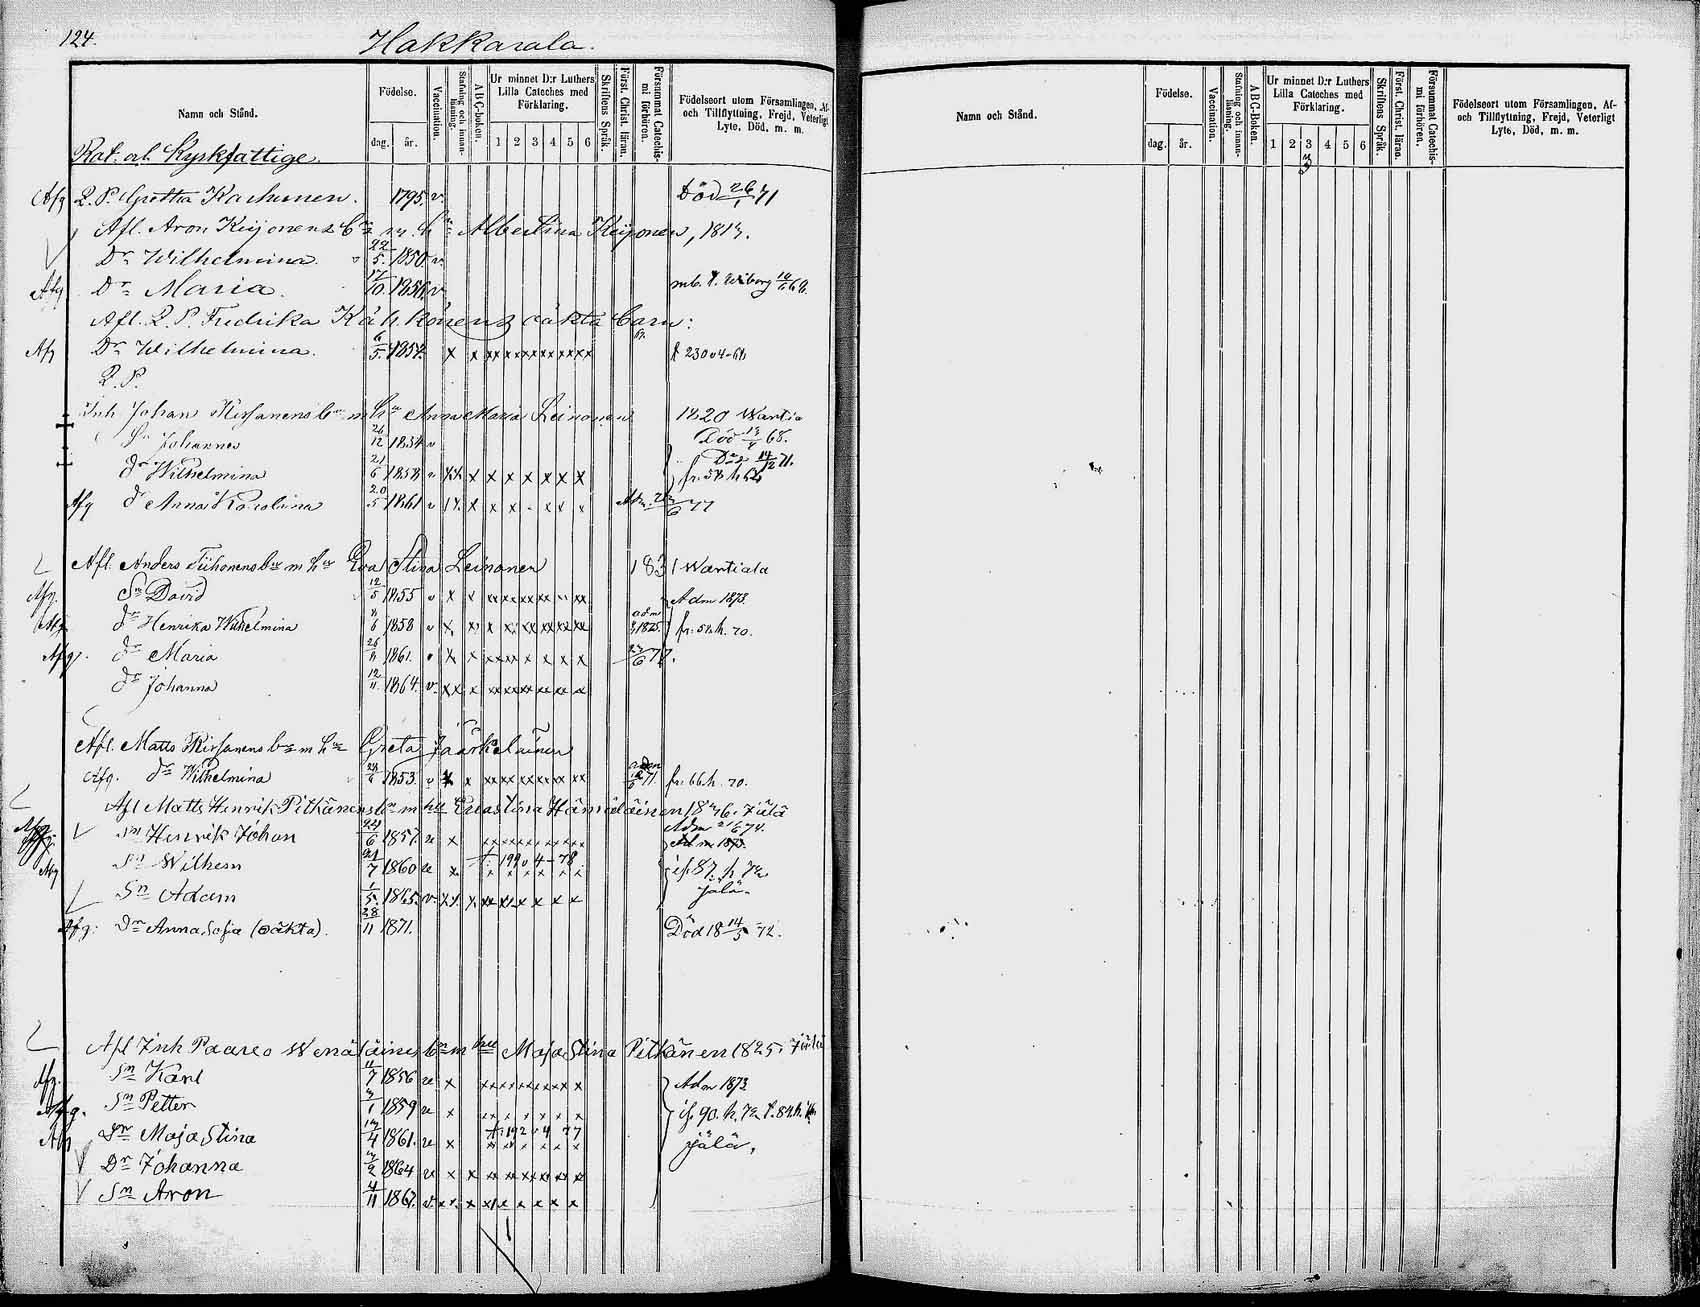 124.
Hakkarala.
Namn och Stånd.
Födelse.
dag. år.
Vaccination.
Stafning och innanläsning.
ABC-Boken.
Ur minnet D:r Luthers Lilla Cateches med Förklaring.
1 2 3 4 5 6
Skriftens Språk.
Först. Christ. läran.
Försummat Catechismi förhören.
Födelseort utom Församlingen, Af- och Tillflyttning, Frejd, Veterligt Lyte, Död, m. m.
Rot. o. Kyrkfattige.
Afg Q. P. Gretha Kachunen. 1795. v. Död 26/1 71
Afl. Aron Keijonens Bn m. hu Albertina Keijonen, 1813.
Dr Wilhelmina. 22/5 1850. v.
Afg Dr Maria. 17/10 1856. v mb. t. Wiborg
Afl. Q. P. Fredrika Kähkönens oäkta barn:
Afg Dr Wilhelmina. 6/5 1857. x x xx xx xx xx xx xx
Q. P.
Inh Johan Hirfanens bn m hu Anna Maria Leinonen 1820 Wartia
Sn Johannes 26/12 1854 v Död 13/4 68.
dr Wilhelmina 21/6 1858 v xx x x x x x x x Död 14/12 71.
Afg dr Anna Karolina 20/5 1861 v x x x x x x x
Afl. Anders Tiihonens bn m hu Eva Stina Leinonen 1831 Wartiala
Afg. Sn David 12/5 1855 v x x xx xx xx xx xx Adm 1873.
Afg. dr Henrika Wilhelmina 8/6 1858 v x x x x xx xx xx xx adm 1875. fr. 58. h. 70.
Afg. dr Maria 26/11 1861. v x x xx xx x x x x 23/6 77.
dr Johanna 12/11 1864. v. xx x xx xx xx xx xx x
Afl. Matts Hirfanens bn m hu Greta Jääskeläinen
Afg. dr Wilhelmina 1853. v x x xx xx xx xx xx xx fr. 66. h. 70.
Afl Matts Henrik Pitkänens bn m hu Evastina Hämäläinen 1826. Jälä
Afg. Sn Henrik Johan 24/6 1857. v x xx xx xx xx xx x Adm 21/6 74.
Adm 1873.
Afg Sn Wilhem 21/7 1860 v x x x x x x x 78 if 87. h 72 Jälä.
Sn Adam 1/5. 1865. v. xx. x. xx xx x x x x
Afg. Dr Anna Sofia (oäkta). 28/11 1871. Död 18 14/5 72.
Afl Inh Paavo Wenäläinens bn m hu Maja Stina Pitkänen 1825. Jälä
Afg. Sn Karl 11/7 1856 v x xx xx xx xx x x Adm 1873
Afg. Sn Petter 1859 v x x x x x x x if. 90. h. 72
Afg Dr Maja Stina 1861. v x 77 Jälä.
Dr Johanna 1864 v x x xx xx xx xx xx xx
Sn Aron 4/11 1867. v. xx. x xx x x x x x
Namn och Stånd.
Födelse.
dag. år.
Vaccination.
Stafning och innanläsning.
ABC-Boken.
Ur minnet D:r Luthers Lilla Cateches med Förklaring.
1 2 3 4 5 6
Skriftens Språk.
Först. Christ. läran.
Försummat Catechismi förhören.
Födelseort utom Församlingen, Af- och Tillflyttning, Frejd, Veterligt Lyte, Död, m. m.